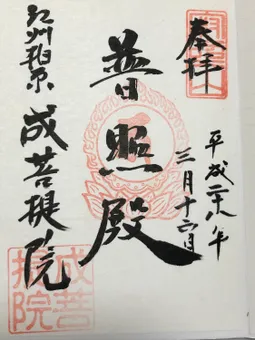 奉拝
平成二十八年
三月十六日
普照殿
江州柏原
成菩提院
成菩提院